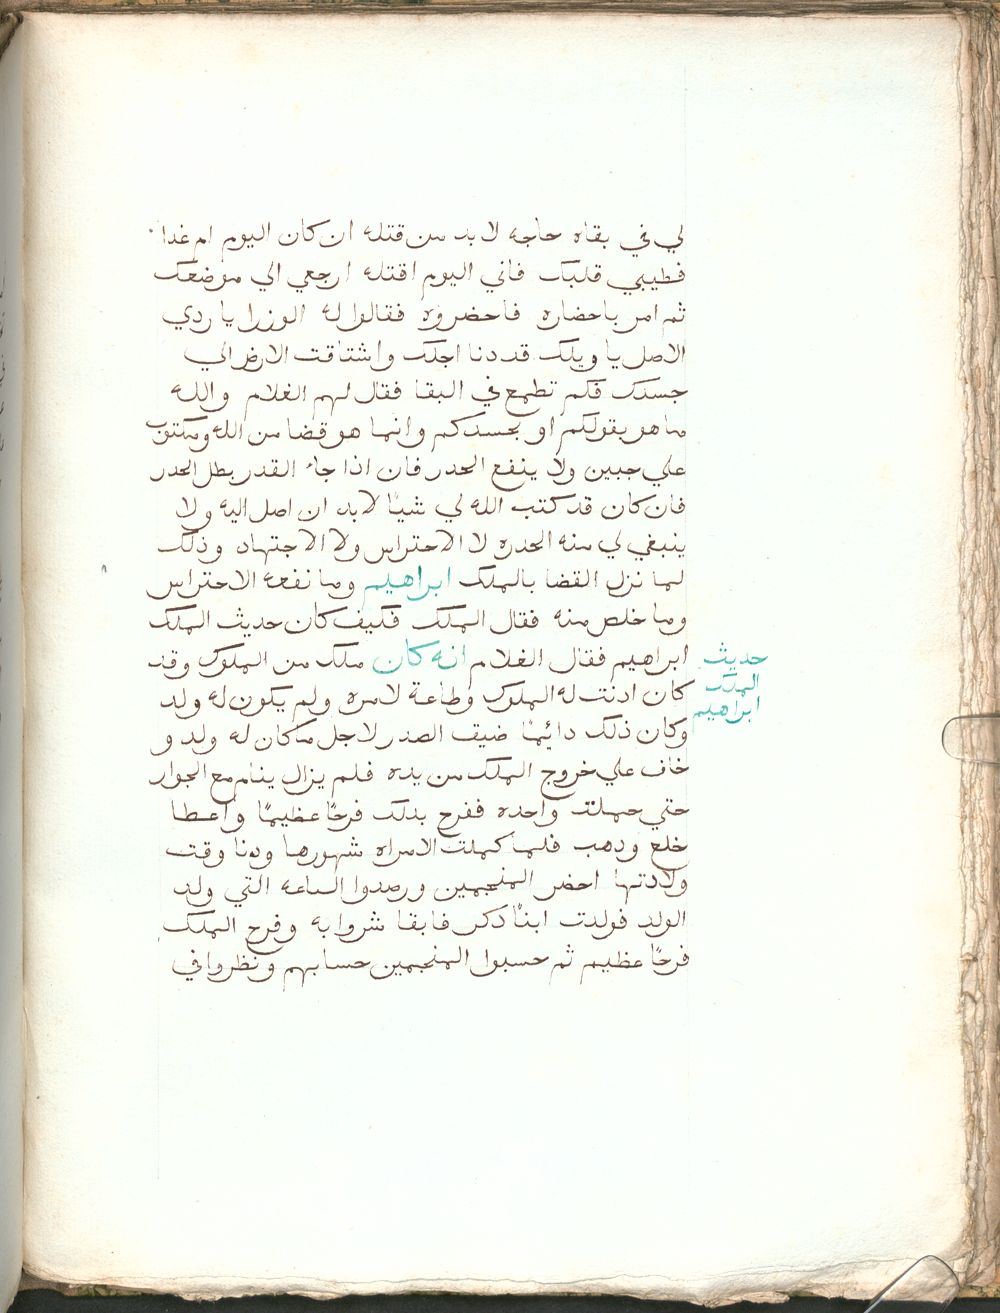 لي في بقاه حاجه لا بد من قتله ان كان اليوم ام غدا
فطيبي قلبك فاني اليوم اقتله ارجعي الي موضعك
ثم امر باحضاره فاحضروه فقالوا له الوزرا يا ردي
الاصل يا ويلك قد دنا اجلك واشتاقت الارض الي
جسدك فكم تطمع في البقا فقال لهم الغلام والله
ما هو بقولكم او بحسدكم وانما هو قضا من الله ومكتوب
علي جبين ولا ينفع الحدر فان اذا جاء القدر بطل الحدر
فان كان قد كتب الله لي شيًا لابد ان اصل اليه ولا
ينبغي لي منه الحدره لا الاحتراس ولا الاجتهاد وذلك
لما نزل القضا بالملك ابراهيم وما نفعه الاحتراس
وما خلص منه فقال الملك فكيف كان حديث الملك
ابراهيم فقال الغلام انه كان ملك من الملوك وقد
حديث
الملك
ابراهيم
كان ادنت له الملوك وطاعة لامره ولم يكون له ولد
وكان ذلك دائِمًا ضيق الصدر لاجل ما كان له ولد و
خاف علي خروج الملك من يده فلم يزال ينام مع الجوار
حتي حملت واحده ففرح بدلك فرحًا عظيمًا واعطا
خلع ودهب فلما كملت الامراه شهورها ودنا وقت
ولادتها احضر المنجمين ورصدوا الساعه التي ولد
الولد فولدت ابنًا دكر فابقا شروا به وفرح الملك
فرحًا عظيم ثم حسبوا المنجمين حسابهم ونظروا في